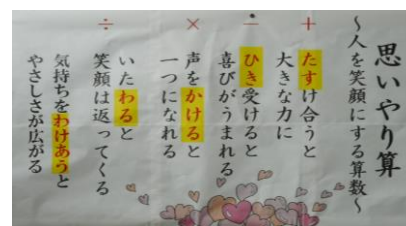 思いやり算
～人を笑顔にする算数～
＋
たすけ合うと
大きな力に
－
ひき受けると
喜びがうまれる
×
声をかけると
一つになれる
÷
いたわると
笑顔は返ってくる
気持ちをわけあうと
やさしさが広がる